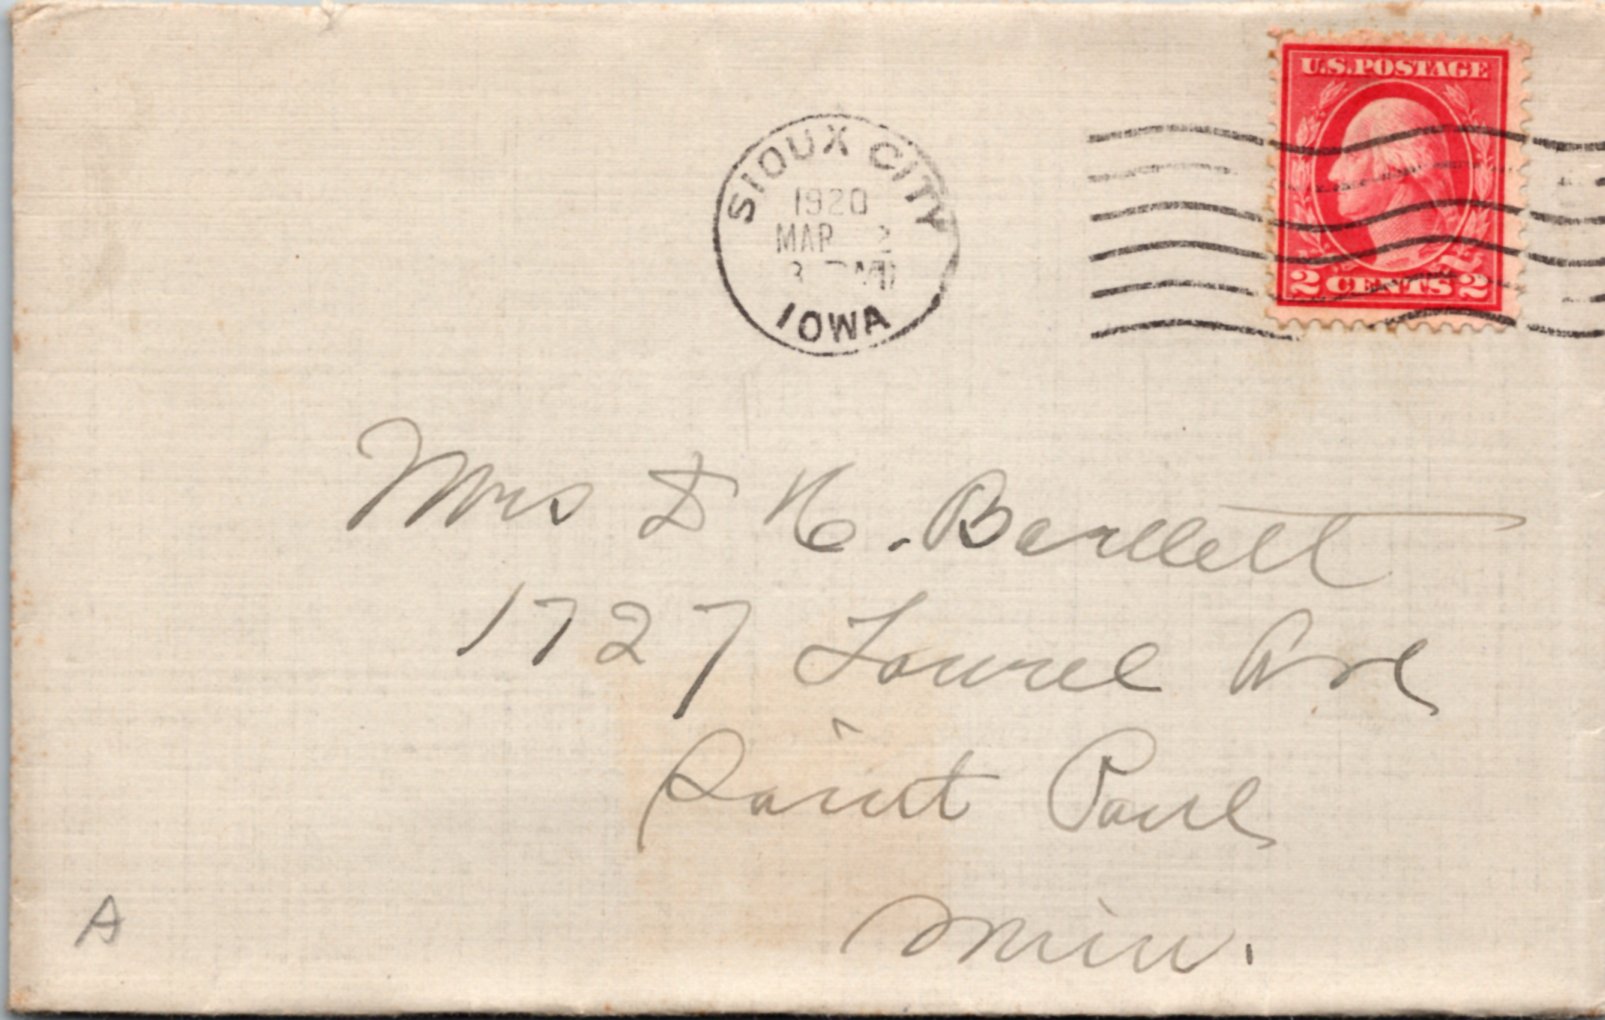 U.S. POSTAGE
2 CENTS 2
SIOUX CITY
1920
MAR 2
3 PM
IOWA
Mrs D H. Bartlett
1727 Laurel Ave
Saint Paul
Minn.
A